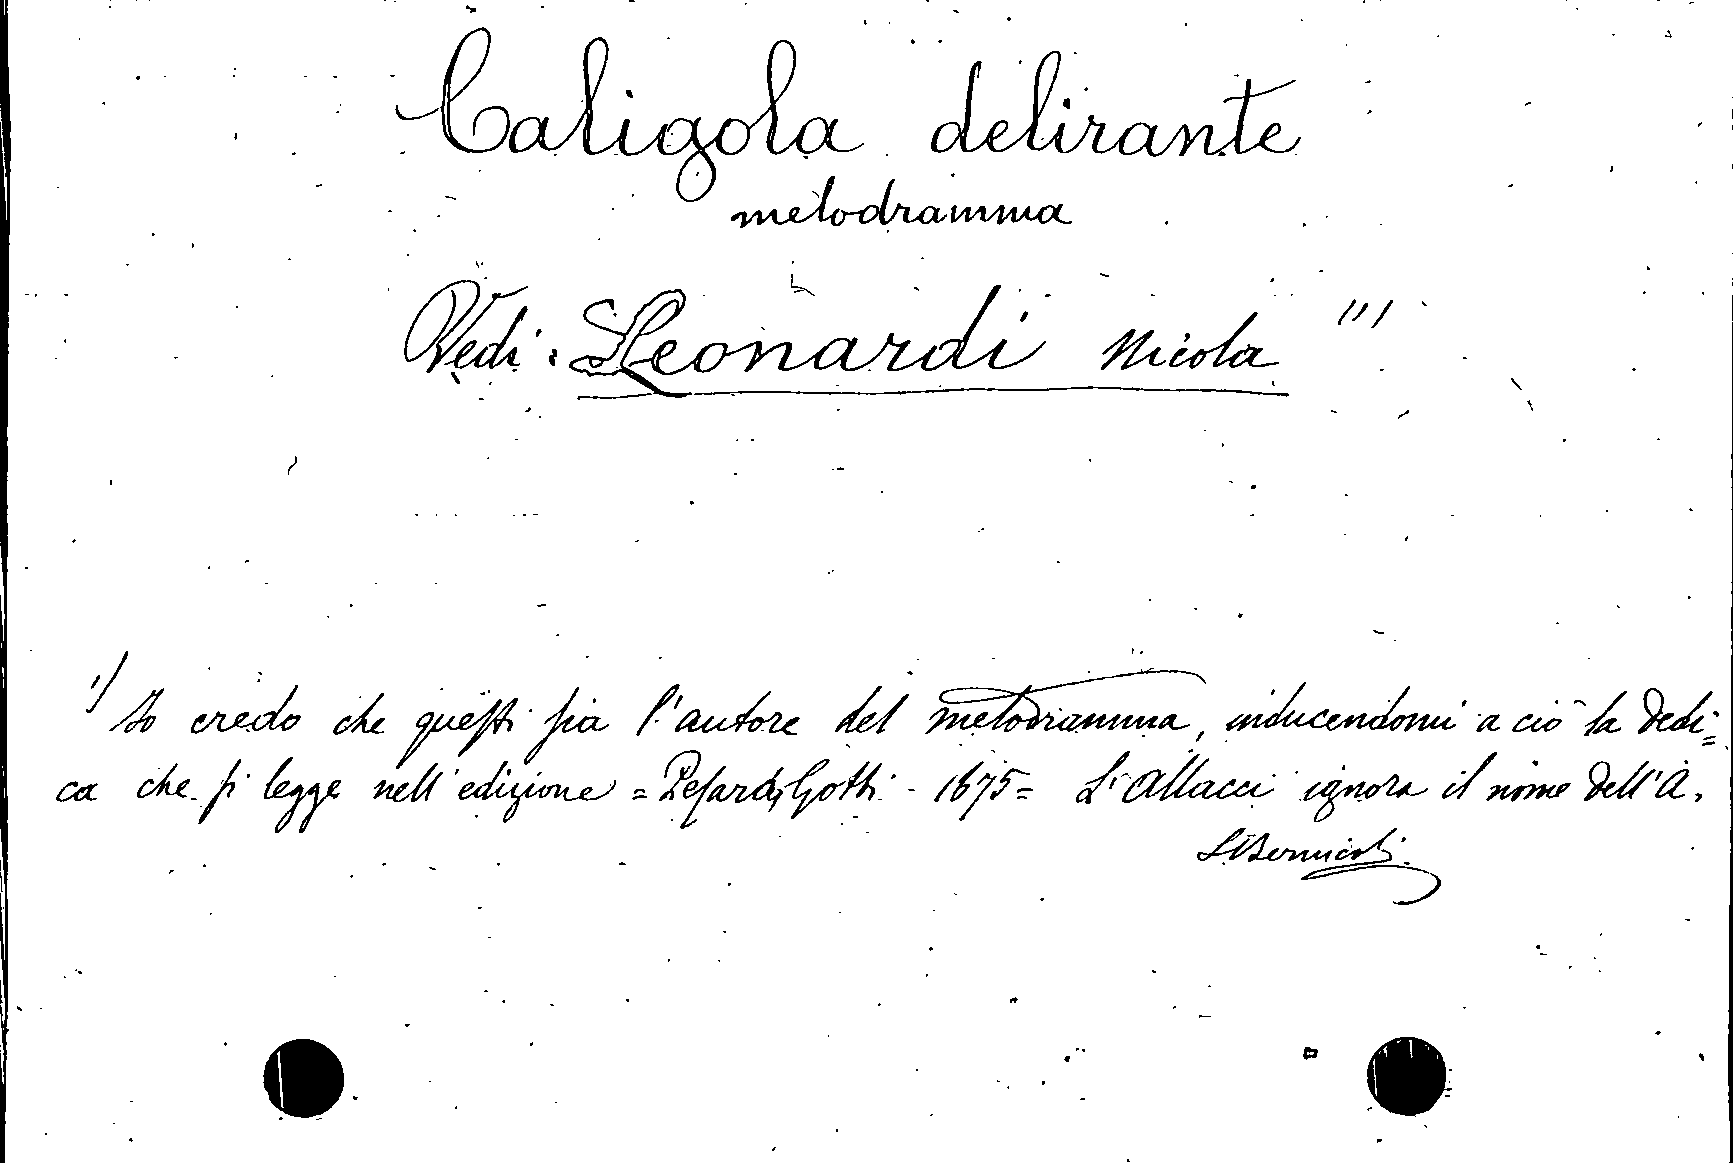 Caligola delirante
melodramma
Vedi: Leonardi Nicola (1)
1) Io credo che questi sia l'autore del melodramma, inducendomi a ciò la dedi=
ca che si legge nell'edizione = Pesaro, Gotti - 1675 = L'Allacci ignora il nome dell'A.
SBernicoli